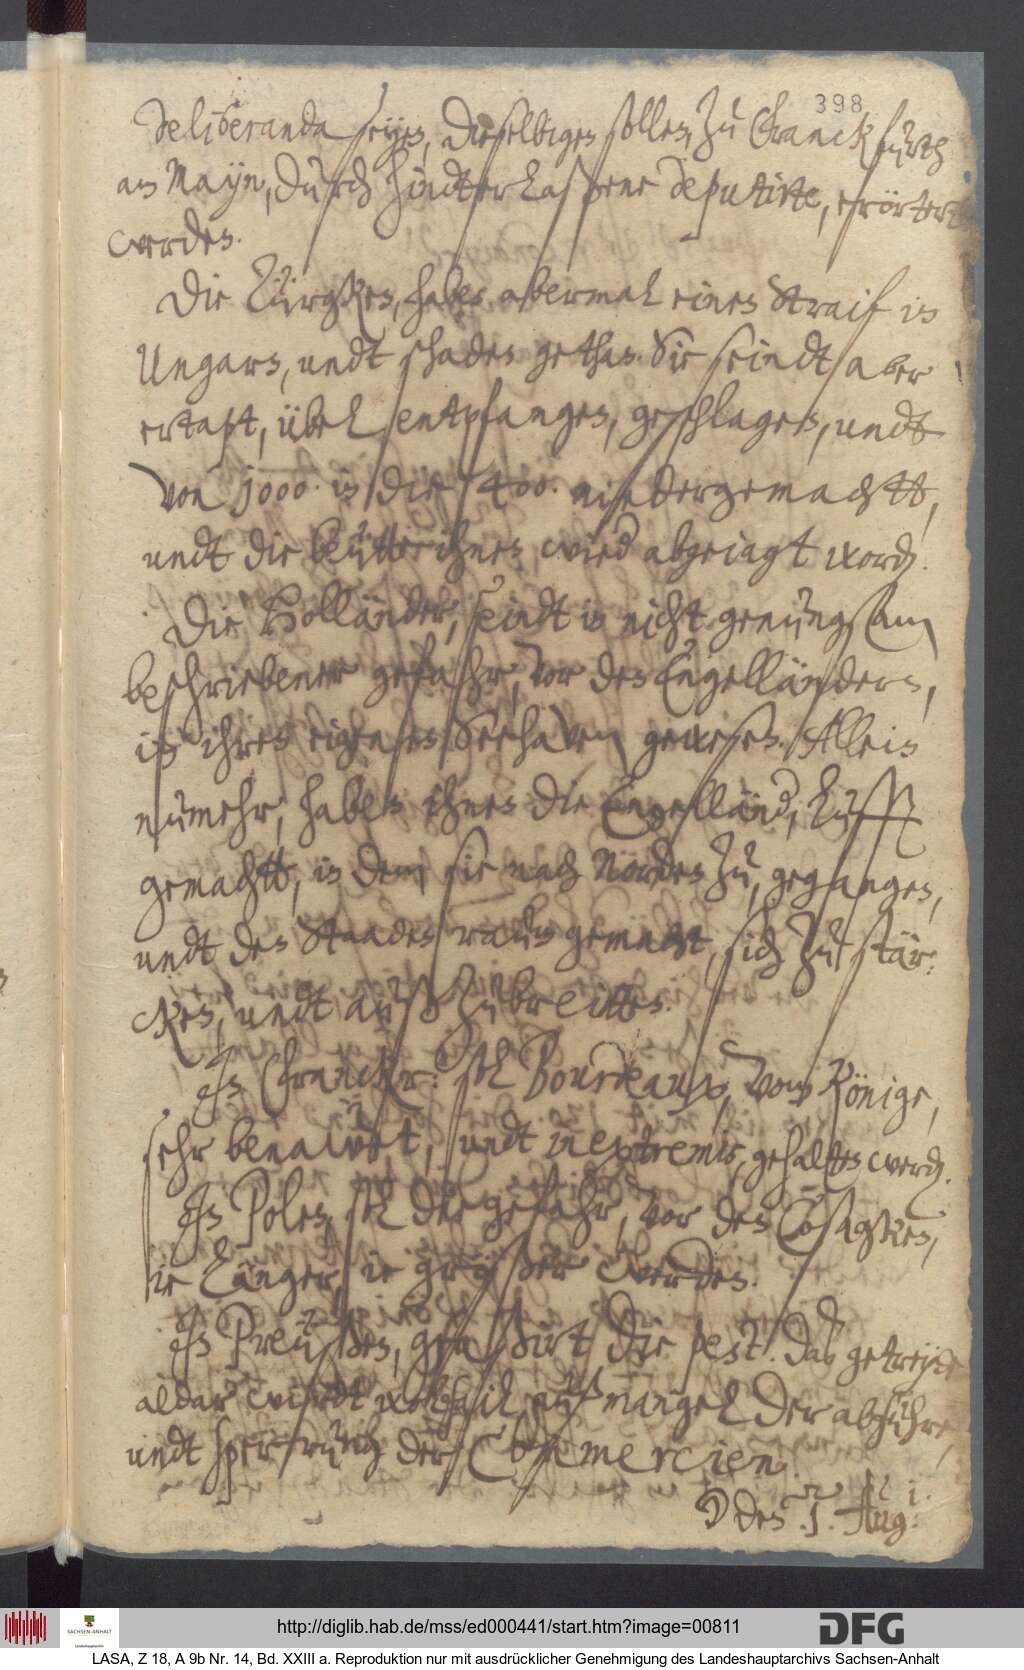 398
deliberanda seyen, dieselbigen sollen, zu Franckfurth
am Mayn, durch hindterlaßene Deputirte, erörtert
werden.
Die Türgken, haben abermal einen Straif in
Ungarn, undt schaden gethan. Sie seindt aber
ertapt, übel entpfangen, geschlagen, undt
von 1000. in die 400. niedergemachtt,
undt die beütte ihnen, wied abgejagt word.
Die Holländer, seindt in nicht genungsam
beschriebener gefahr, vor den Engelländern,
in ihren eigenen Seehaven gewesen. Allein
numehr, haben ihnen die Engelländ, lufft
gemachtt, in dem sie nach Norden zu, gegangen,
undt den Staaden raum gemacht, sich zu stär:
cken, undt außzubreitten.
In Franckr: soll Bourdeaux, vom Könige,
sehr benawet, undt in extremis, gehaltten werd.
In Polen, soll die gefahr, vor den Cosagken,
ie länger, ie größer werden.
In Preüßen, grassirt, die pest. Das getreyde
aldar wirdt wolfail, auß mangel der abfuhre,
undt sperrung der Commercien.
den 1. Aug:
http://diglib.hab.de/mss/ed000441/start.htm?image=00811
DFG
SACHSEN-ANHALT
Landeshauptarchiv
LASA, Z 18, A 9b Nr. 14, Bd. XXIII a. Reproduktion nur mit ausdrücklicher Genehmigung des Landeshauptarchivs Sachsen-Anhalt